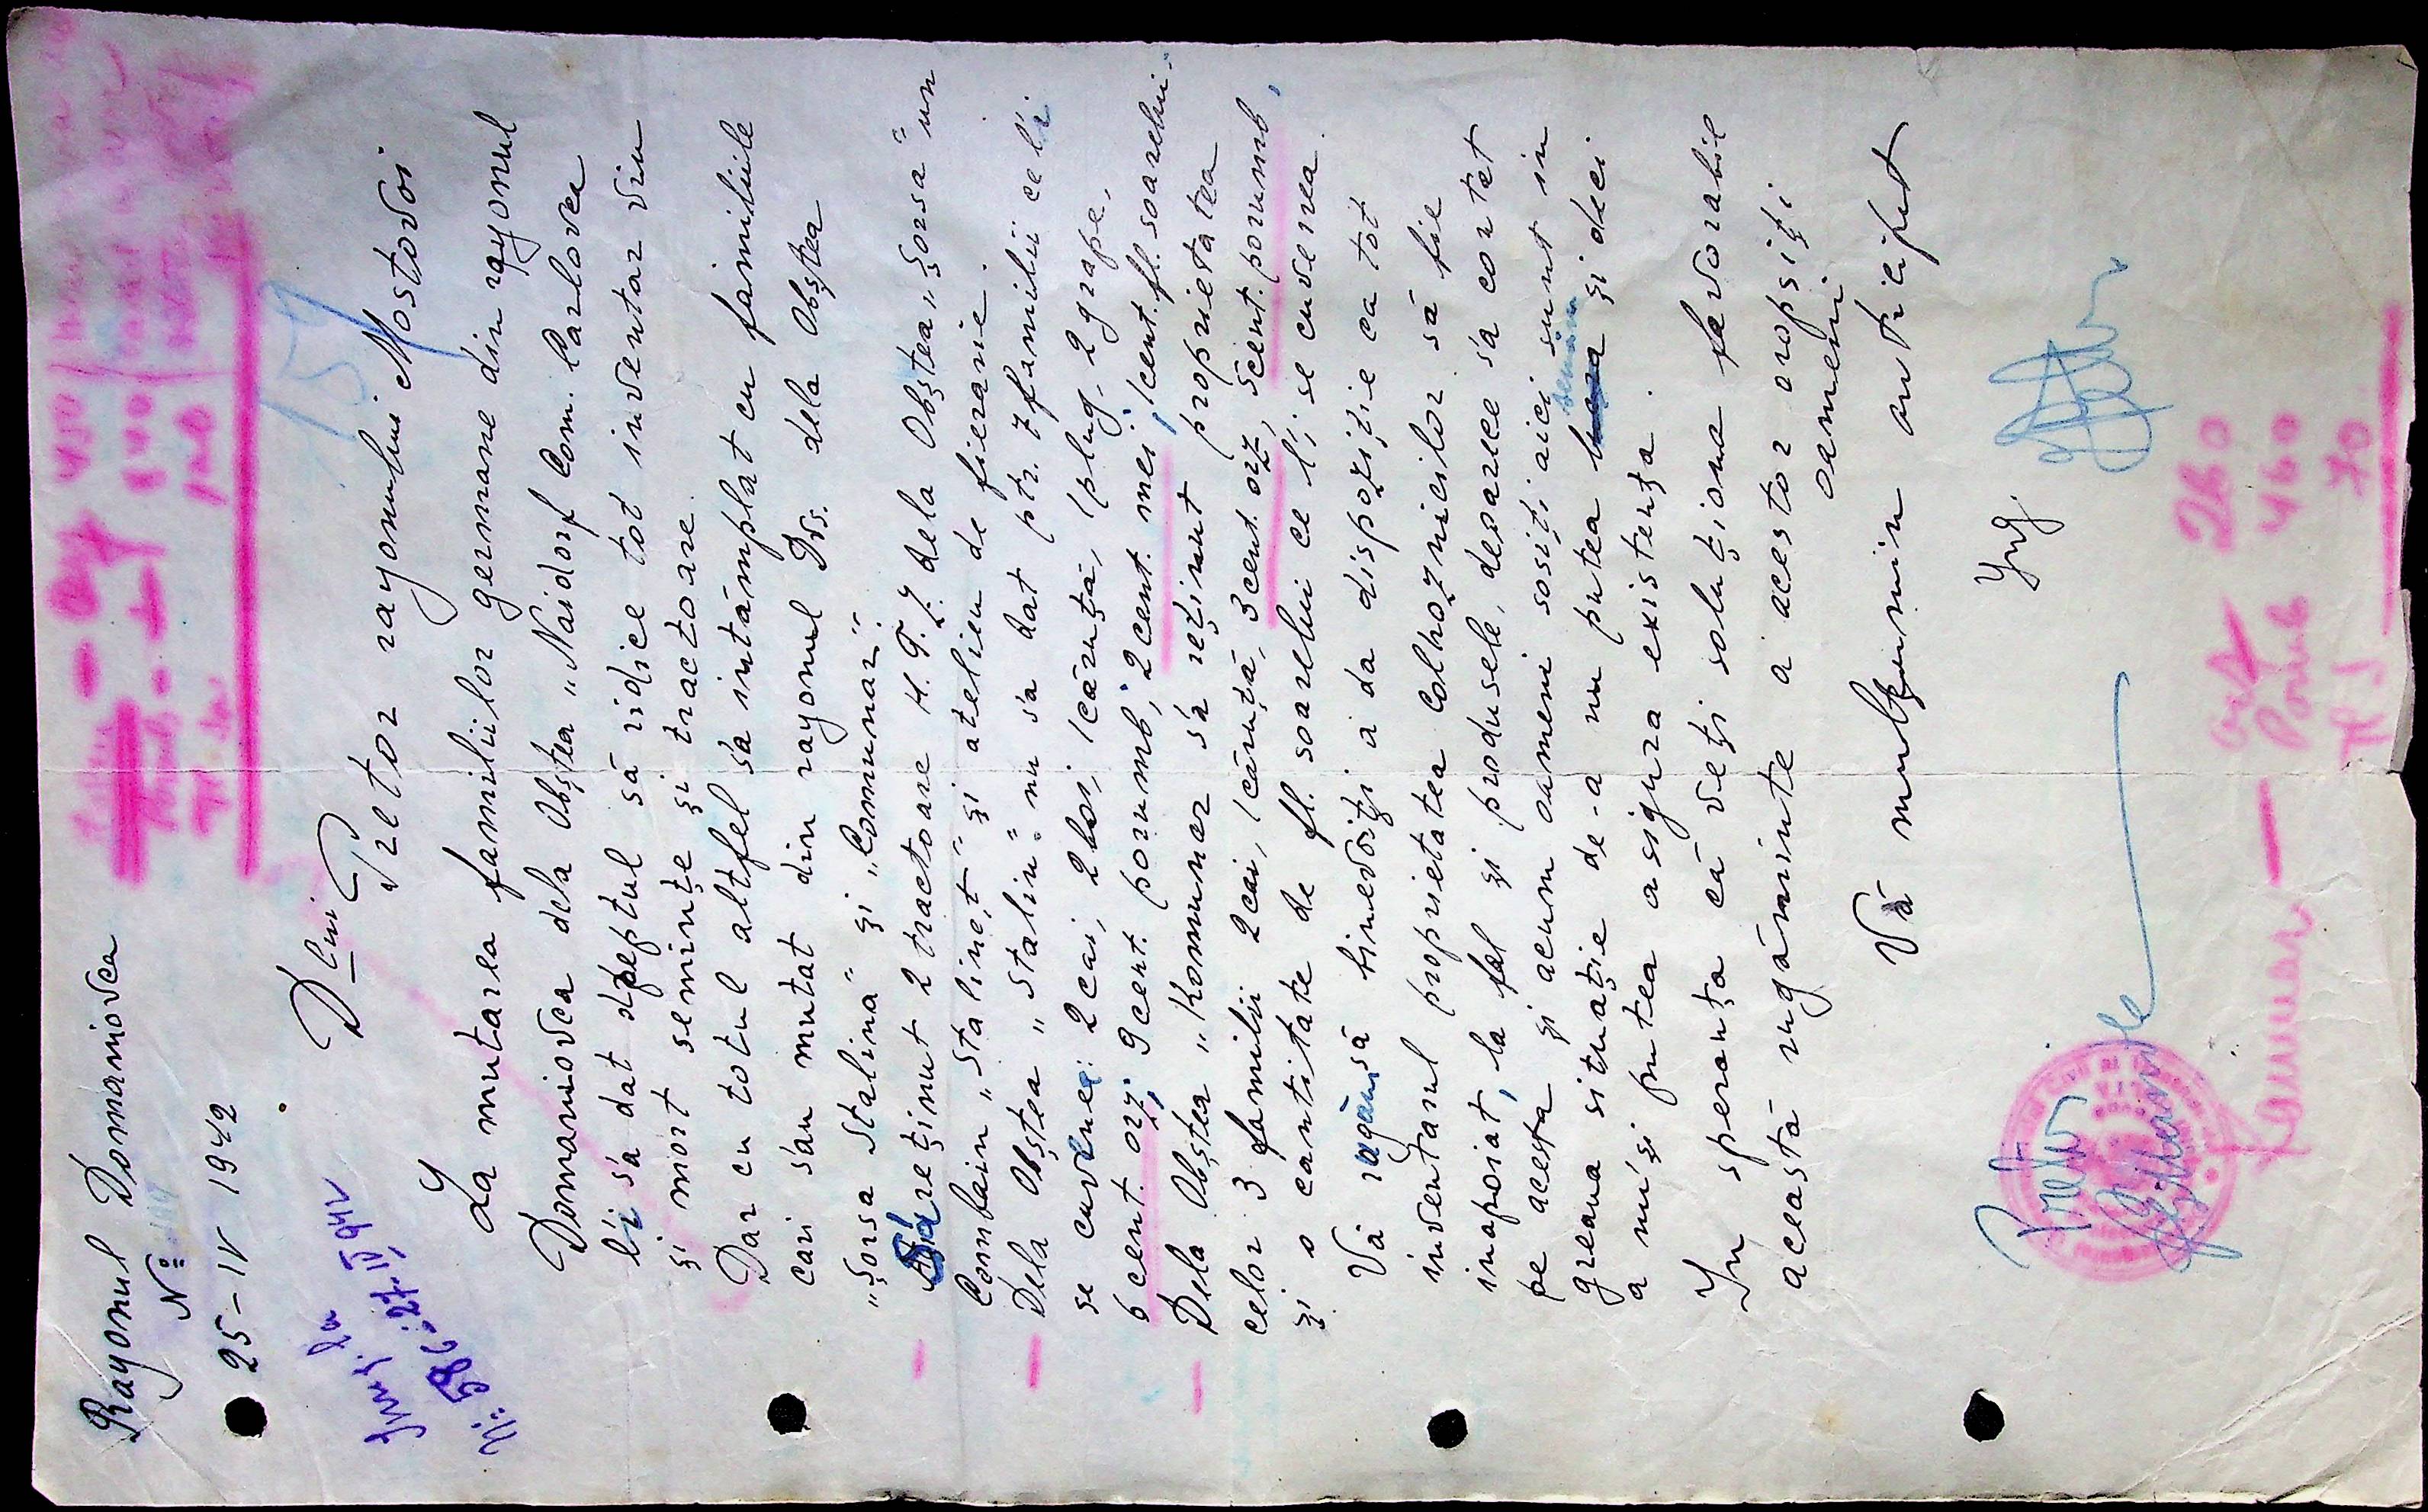 Rayonul Domaniovca
Nº
25-IV 1942
Inreg. la
27.IV 942
Nr: 586
157
Dlui Pretor rayonului Mostovoi
La mutarea familiilor germane din rayonul
Domaniovca dela Obștea „Naidorf Com. Carlovca
li s'a dat dreptul să ridice tot inventar viu
și mort semințe și tractoare.
Dar cu totul altfel s'a intâmplat cu familiile
cari s'au mutat din rayonul Dvs. dela Obștea
„Șorsa Stalina" și „Comunar".
S'a reținut 2 tractoare H.T.Z. dela Obștea „Șorsa" un
Combain „Stalineț" și atelieu de fierarie.
Dela Obștea „Stalin" nu s'a dat ptr. 7 familii ce li
se cuvenea: 2 cai, 2 boi, 1 căruță, 1 plug, 2 grape,
6 cent. orz; 9 cent. porumb; 2 cent. mei; 1 cent. fl. soarelui.
Dela Obștea „Komunar s'a reținut proprietatea
celor 3 familii 2 cai, 1 căruță, 3 cent. orz, 5 cent. porumb,
și o cantitate de fl. soarelui ce li se cuvenea.
Vă rugăm să binevoiți a da dispoziție ca tot
inventarul proprietatea Colhoznicilor să fie
inapoiat, la fel și produsele, deoarece s'a contat
pe acesta și acum oameni sosiți aici sunt in
greaua situație de-a nu putea semăna și deci
a nu'și putea asigura existența.
In speranța că veți soluționa favorabil
această rugăminte a acestor oropsiți
oameni
Vă mulțumim anticipat
Pretor
Ing.
Comunar — orz 260
Pomb 460
70